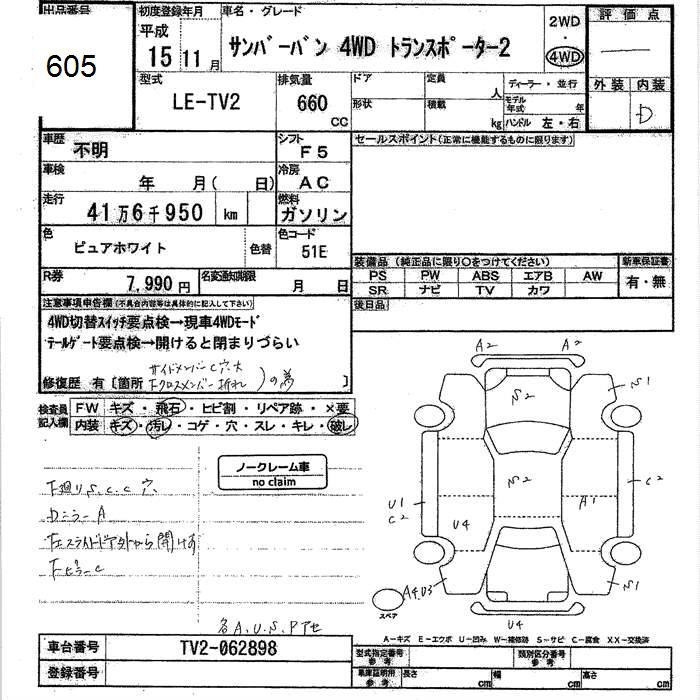 出品番号
605
初度登録年月
平成
15 11月
車名・グレード
サンバーバン 4WD トランスポーター2
2WD
・
4WD
評価点
外装 内装
D
型式
LE-TV2
排気量
660
CC
ドア
形状
定員
人
積載
kg
ディーラー・並行
モデル年式 年
ハンドル 左・右
車歴
不明
シフト
F5
セールスポイント(正常に機能するものに限ります)
車検
年 月( 日)
冷房
AC
走行
41万6千950 km
燃料
ガソリン
色
ピュアホワイト
色替
色コード
51E
装備品 (純正品に限り○をつけてください)
PS PW ABS エアB AW
SR ナビ TV カワ
新車保証書
有・無
R券
7,990円
名変通知期限
月 日
後日品
注意事項申告欄(不具合内容等は具体的に記入して下さい)
4WD切替スイッチ要点検→現車4WDモード
テールゲート要点検→開けると閉まりづらい
修復歴 有 [箇所 サイドメンバーC穴大 Fクロスメンバー折れ )の為 ]
検査員記入欄
FW キズ・飛石・ヒビ割・リペア跡・×要
内装 キズ・汚レ・コゲ・穴・スレ・キレ・破レ
ノークレーム車
no claim
下廻りS.C.C穴
ロミラーA
Fピラーc
各A.U.S.Pアセ
A2 A2
S2
S1
S2
U1
C2
U4
A1
C2
A4U3
S1
U4
スペア
A-キズ E-エクボ U-凹み W-補修跡 S-サビ C-腐食 XX-交換済
車台番号
TV2-062898
登録番号
型式指定番号
参考
類別区分番号
参考
車庫証明用
参考
長さ cm
幅 cm
高さ cm